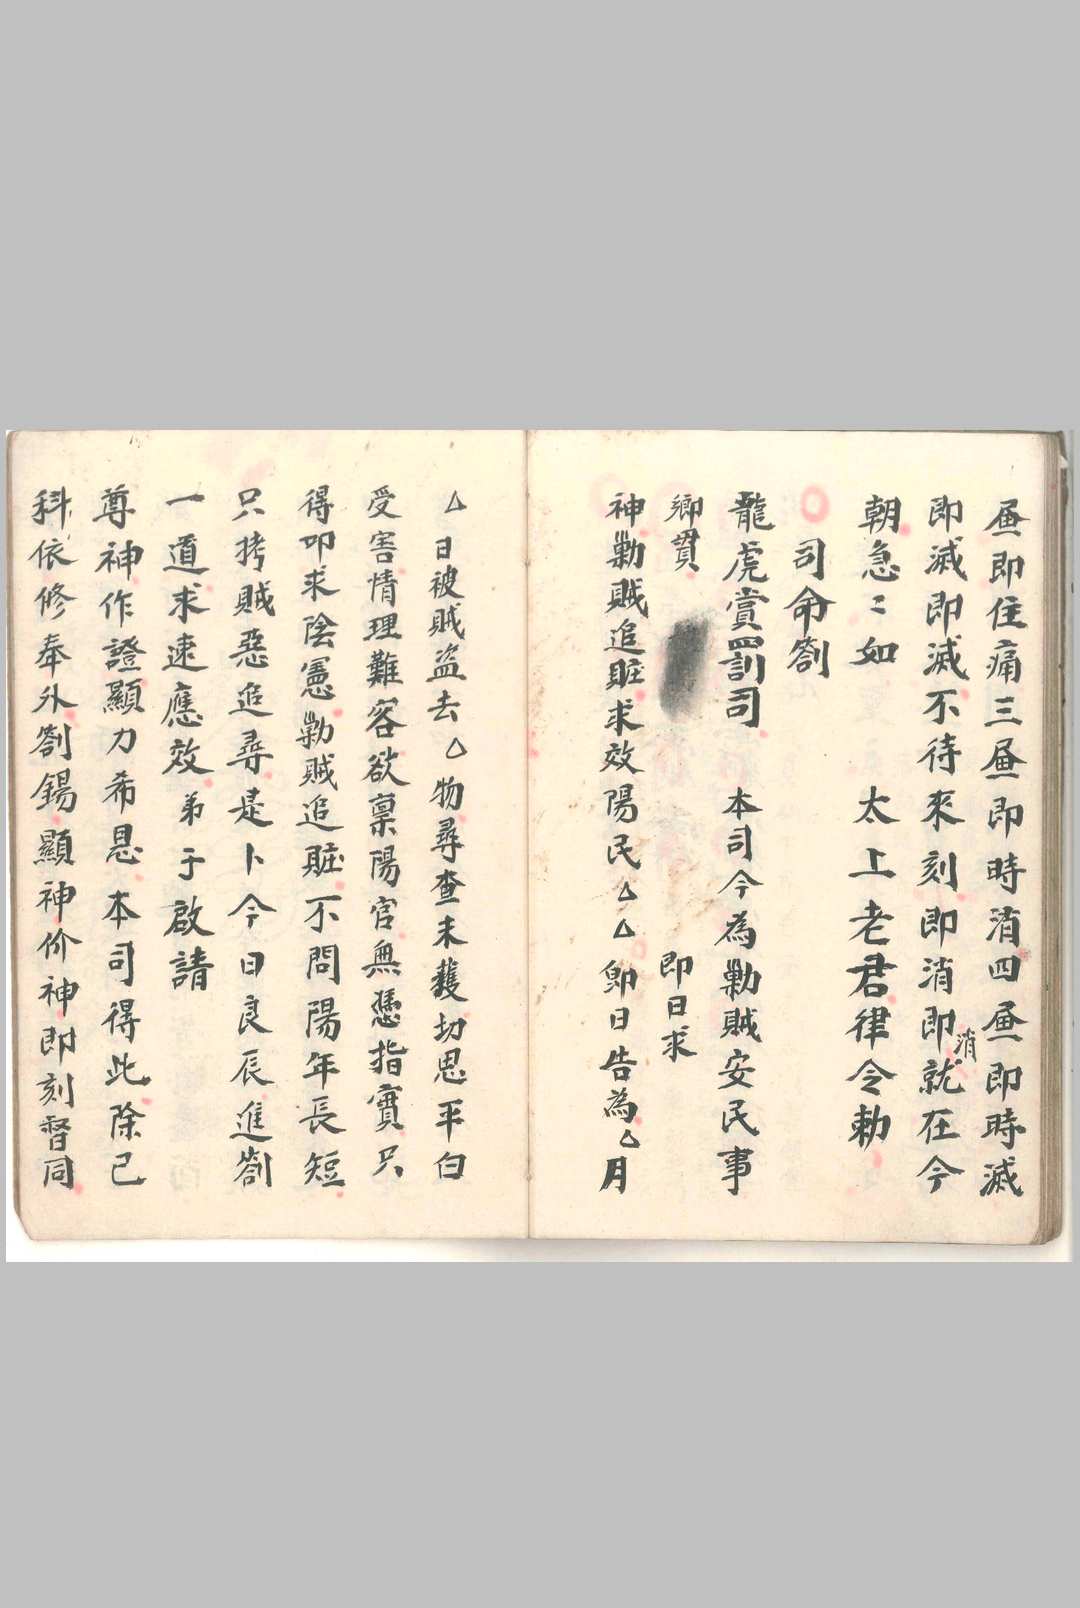 昼即住痛三昼即時消四昼即時滅
即滅即滅不待來刻即消即消就在今
朝急々如 太上老君律令勅
司命劄
龍虎賞罰司 本司今為勦賊安民事
鄉貫 即日求
神勦賊追賍求效陽民△△卽日告為△月
△日被賊盜去△物尋查未獲切思平白
受害情理難容欲稟陽官無憑指實只
得叩求陰憲勦賊追賍不問陽年長短
只拷賊惡追尋是卜今日良辰進劄
一道求速應效弟于啟請
尊神作證顯力希恩本司得此除已
科依修奉外劄錫顯神价神即刻督同